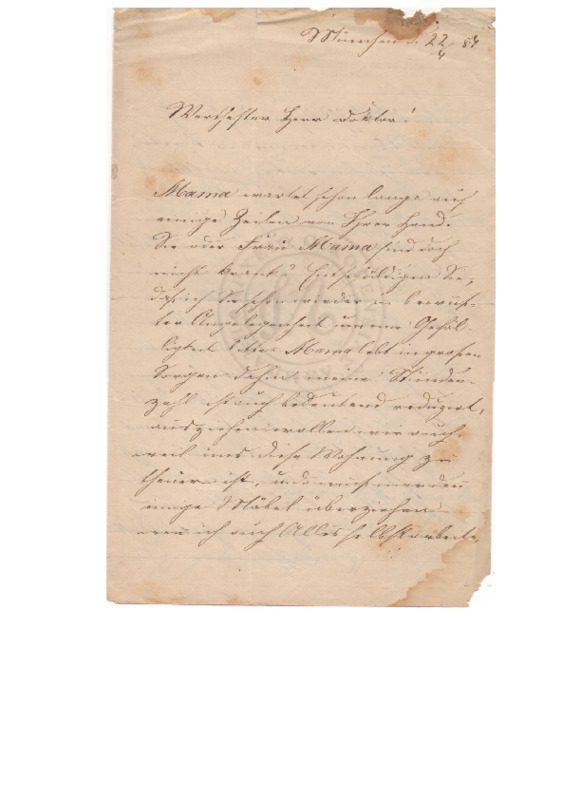 München d. 22/4 84
Werthester Herr Doktor!
Mama wartet schon lange auf
einige Zeilen von Ihrer Hand.
Sie oder Frau Mama sind doch
nicht krank? Entschuldigen Sie,
daß ich Sie schon wieder in bewuß-
ter Angelegenheit um eine Gefäl-
ligkeit bitte. Mama lebt in großen
Sorgen dahin, meine Stunden-
zahl ist auch bedeutend reduzirt,
ausziehen wollen wir auch
weil uns diese Wohnung zu
theuer ist, und auch werden
einige Möbel überziehen
wenn ich auch Alles selbst arbeite,